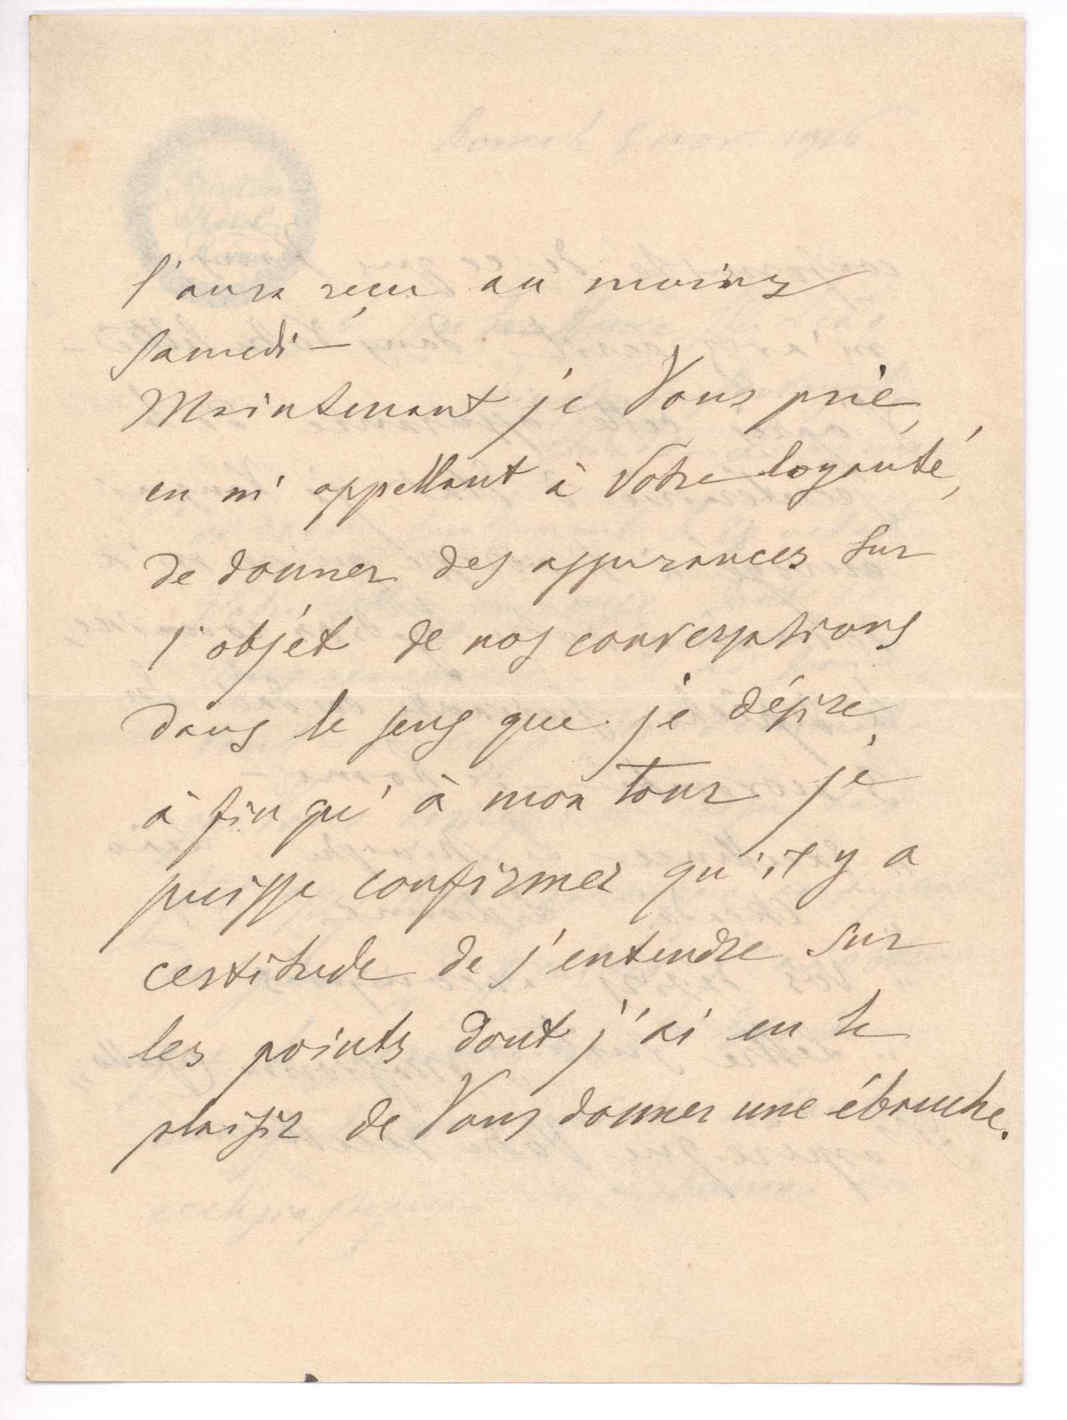 l'aura reçu au moins
samedi —
Maintenant je Vous prie,
en m'appellant à Votre loyauté,
de donner des assurances sur
l'objet de nos conversations
dans le sens que je désire
à fin qu'à mon tour je
puisse confirmer qu'il y a
certitude de s'entendre sur
les points dont j'ai eu le
plaisir de Vous donner une ébauche.